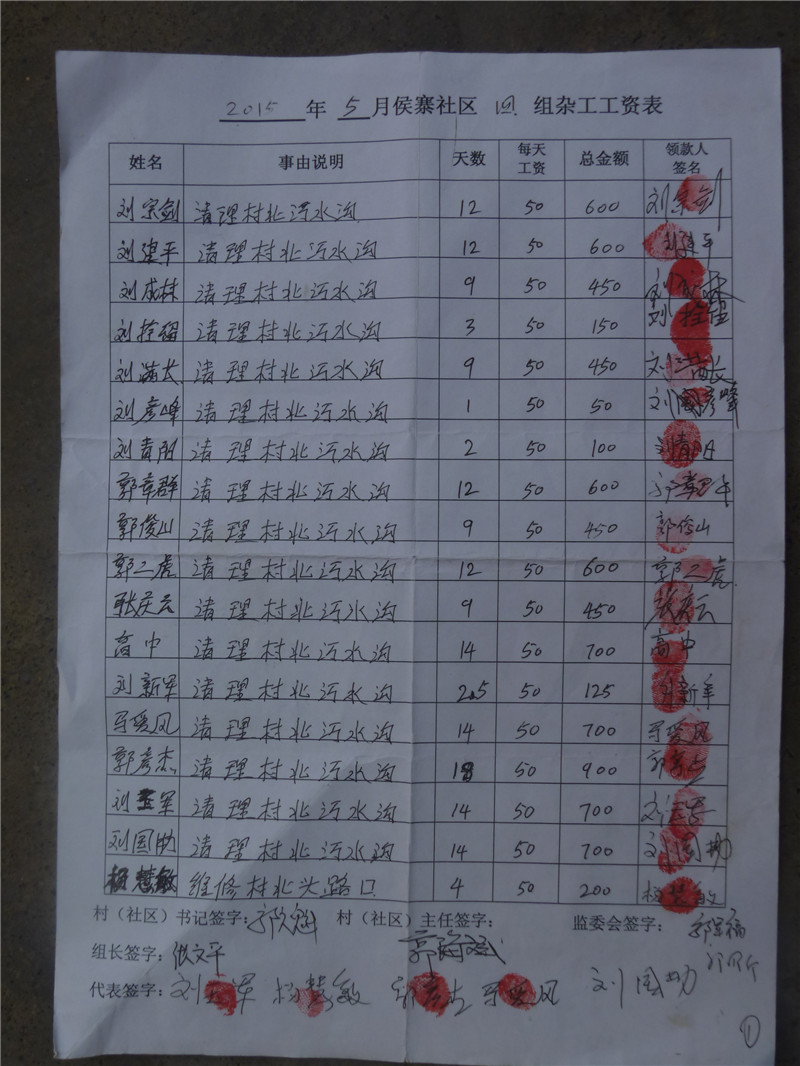 2015 年 5 月侯寨社区 四 组杂工工资表
姓名 事由说明 天数 每天工资 总金额 领款人签名
刘宗剑 清理村北污水沟 12 50 600 刘宗剑
刘建平 清理村北污水沟 12 50 600 刘建平
刘成林 清理村北污水沟 9 50 450 刘成林
刘拴留 清理村北污水沟 3 50 150 刘拴留
刘满长 清理村北污水沟 9 50 450 刘满长
刘彦峰 清理村北污水沟 1 50 50 刘国彦峰
刘青阳 清理村北污水沟 2 50 100 刘青阳
郭章群 清理村北污水沟 12 50 600 郭章群
郭俊山 清理村北污水沟 9 50 450 郭俊山
郭二虎 清理村北污水沟 12 50 600 郭二虎
张庆云 清理村北污水沟 9 50 450 张庆云
高中 清理村北污水沟 14 50 700 高中
刘新军 清理村北污水沟 2.5 50 125 刘新军
马爱风 清理村北污水沟 14 50 700 马爱风
郭彦杰 清理村北污水沟 18 50 900 郭彦杰
刘玉军 清理村北污水沟 14 50 700
刘国助 清理村北污水沟 14 50 700 刘国助
杨慧敏 维修村北头路口 4 50 200 杨慧敏
村（社区）书记签字： 村（社区）主任签字： 监委会签字：
组长签字：张文平 郭海斌
代表签字： 杨慧敏 郭彦杰 马爱风 刘国助
1